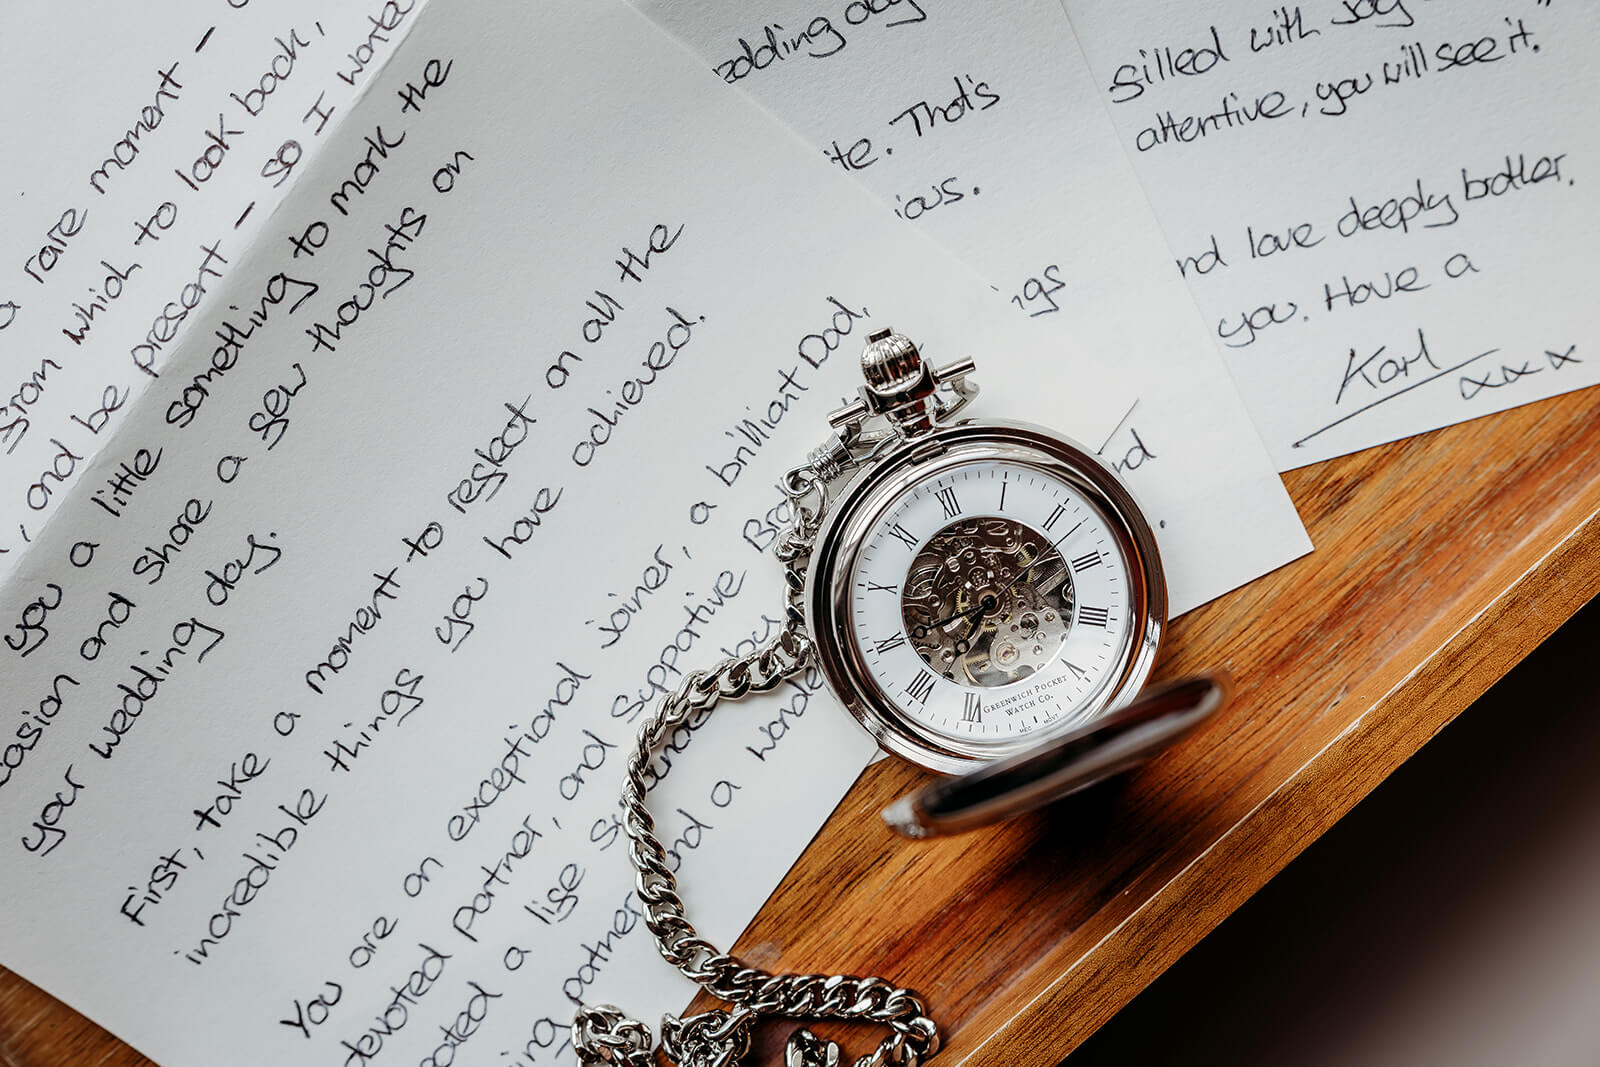 a rare moment -
from which to look back,
, and be present - so I wanted
you a little something to mark the
occasion and share a few thoughts on
your wedding day.
First, take a moment to reflect on all the
incredible things you have achieved.
You are an exceptional joiner, a brilliant Dad,
devoted partner, and supportive
a life
partner and a
wedding day
That's
filled with joy
attentive, you will see it.
and love deeply brother.
you. Have a
Karl
xxx
XII I II III IIII V VII VIII IX X XI
GREENWICH POCKET
WATCH CO.
MEC MOVT